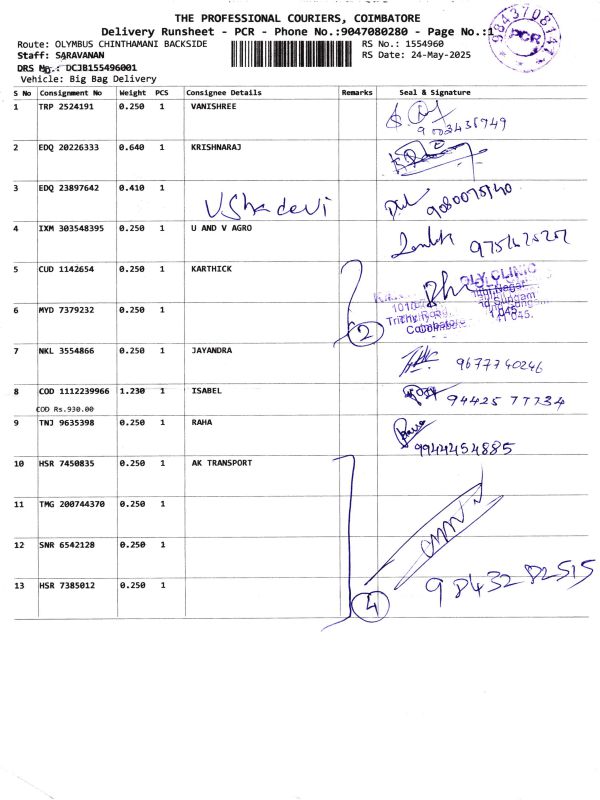 THE PROFESSIONAL COURIERS, COIMBATORE
Delivery Runsheet - PCR - Phone No.:9047080280 - Page No.:1
Route: OLYMBUS CHINTHAMANI BACKSIDE RS No.: 1554960
Staff: SARAVANAN RS Date: 24-May-2025
DRS No.: DCJB155496001
Vehicle: Big Bag Delivery
9843708147
PCR
S No Consignment No Weight PCS Consignee Details Remarks Seal & Signature
1 TRP 2524191 0.250 1 VANISHREE
2 EDQ 20226333 0.640 1 KRISHNARAJ
3 EDQ 23897642 0.410 1
Ushadevi
4 IXM 303548395 0.250 1 U AND V AGRO
5 CUD 1142654 0.250 1 KARTHICK
POLY CLINIC
Trichy Road
Coimbatore
2
6 MYD 7379232 0.250 1
7 NKL 3554866 0.250 1 JAYANDRA
9677740246
8 COD 1112239966 1.230 1 ISABEL
94425 77734
COD Rs.930.00
9 TNJ 9635398 0.250 1 RAHA
9944454885
10 HSR 7450835 0.250 1 AK TRANSPORT
11 TMG 200744370 0.250 1
12 SNR 6542128 0.250 1
13 HSR 7385012 0.250 1
9843282515
4